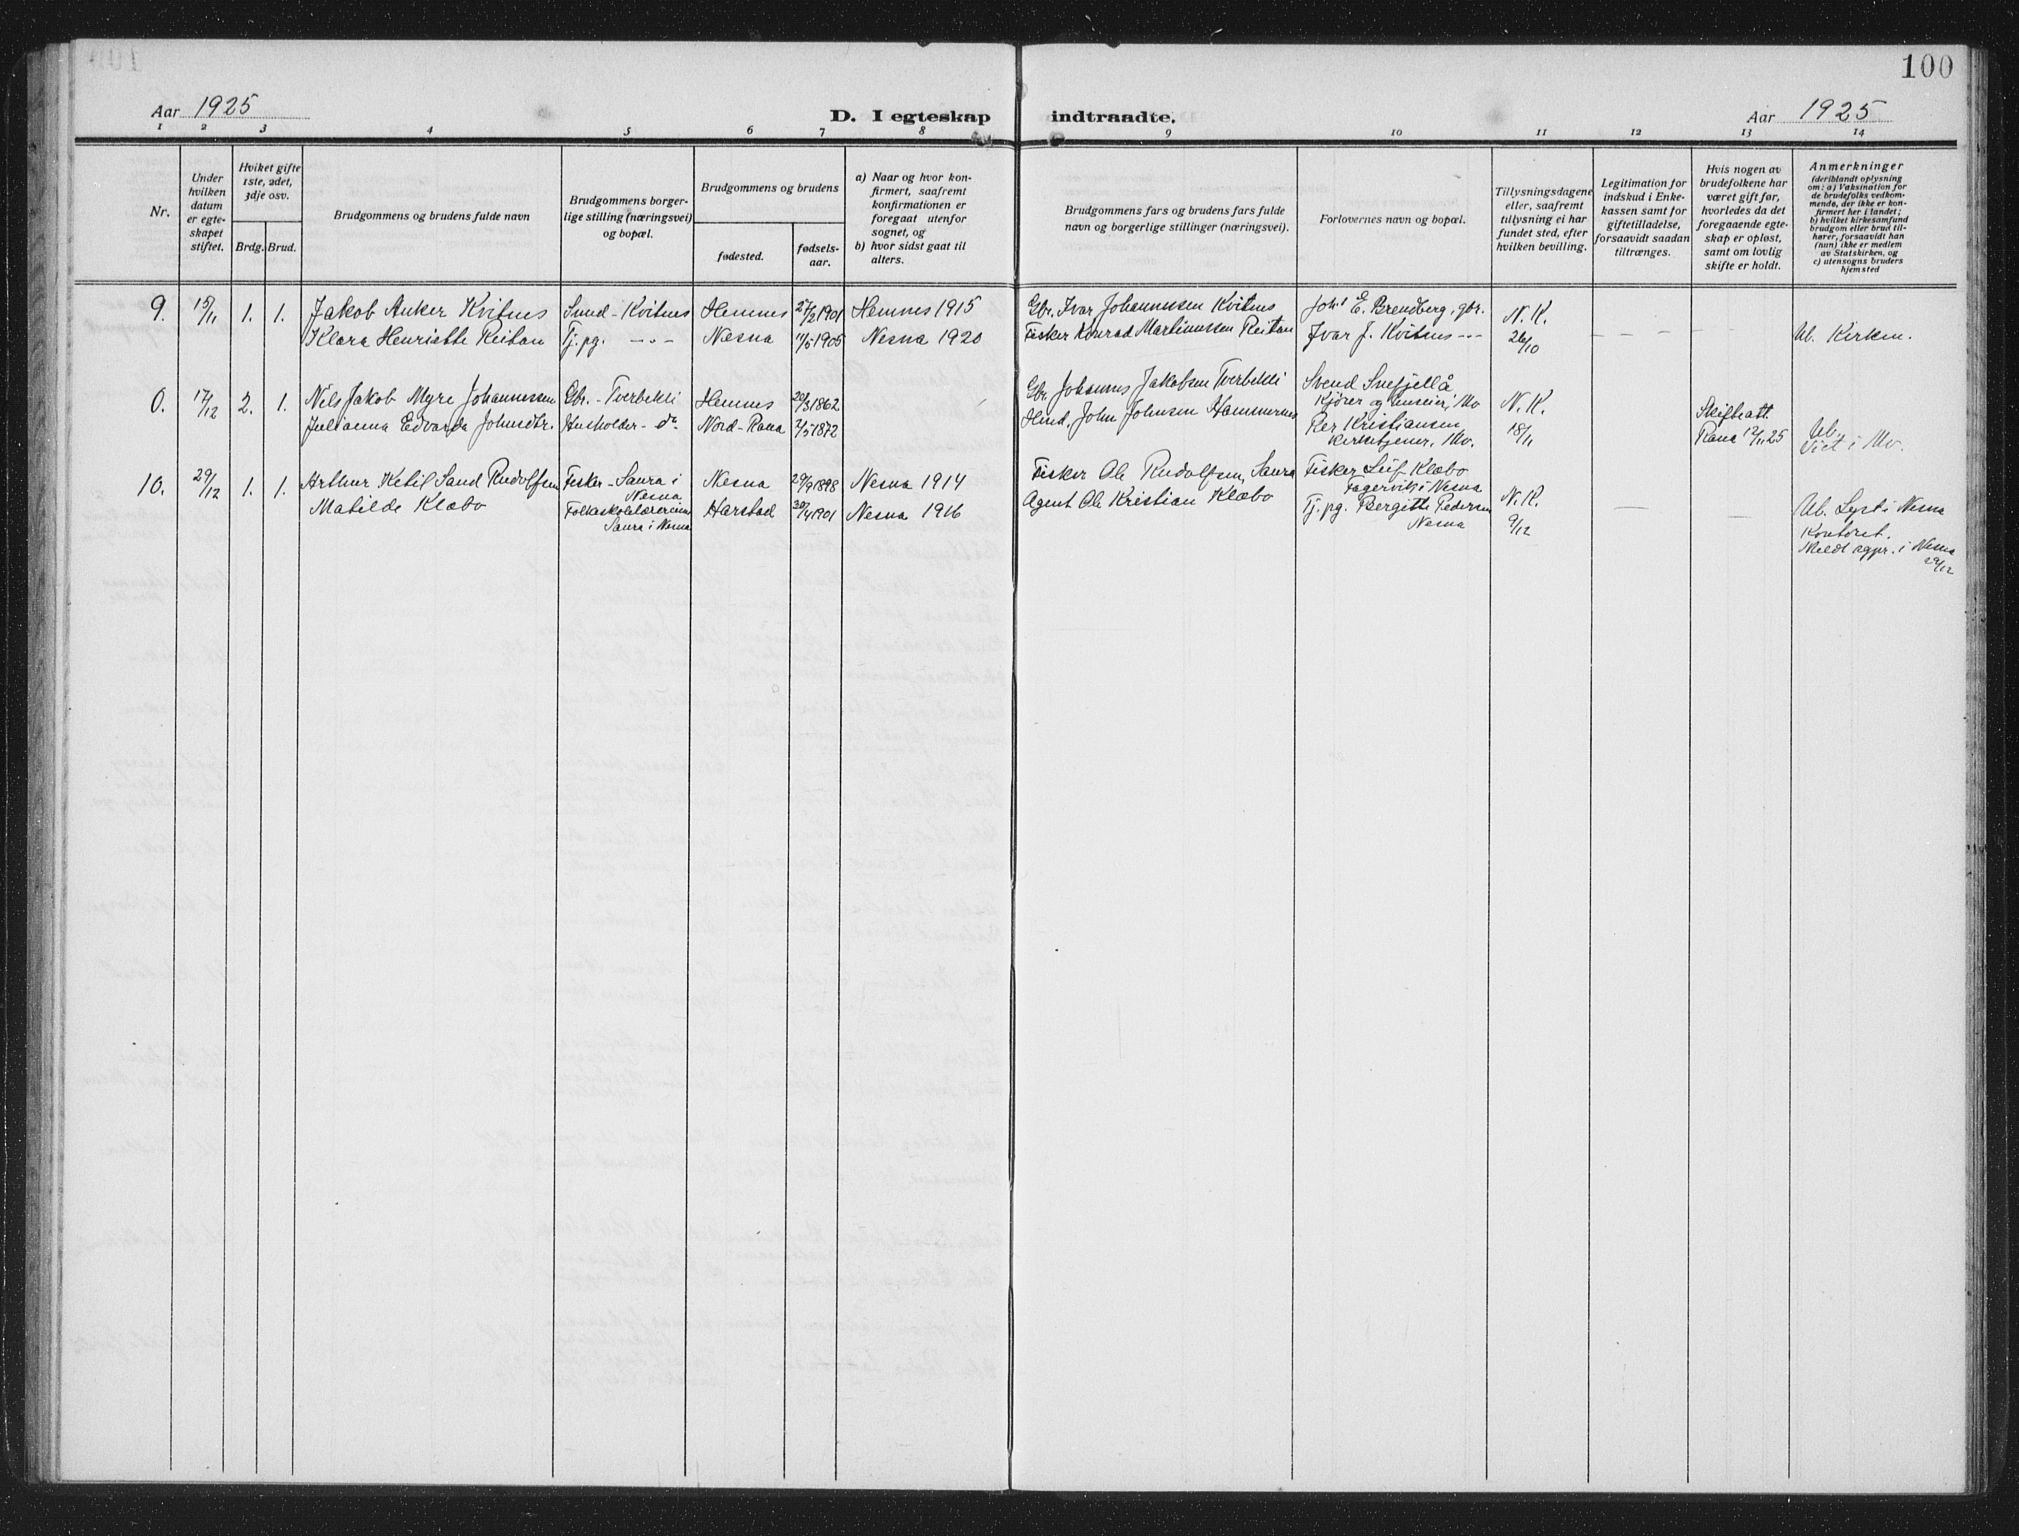 100
Aar 1925
D. I egteskap indtraadte.
Aar 1925
1 2 3 4 5 6 7 8 9 10 11 12 13 14
Nr.
Under
hvilken
datum
er egte-
skapet
stiftet.
Hviket gifte
1ste, 2det,
3dje osv.
Brdg. Brud.
Brudgommens og brudens fulde navn
Brudgommens borger-
lige stilling (næringsvei)
og bopæl.
Brudgommens og brudens
fødested.
fødsels-
aar.
a) Naar og hvor kon-
firmert, saafremt
konfirmationen er
foregaat utenfor
sognet, og
b) hvor sidst gaat til
alters.
Brudgommens fars og brudens fars fulde
navn og borgerlige stillinger (næringsvei).
Forlovernes navn og bopæl.
Tillysningsdagene
eller, saafremt
tillysning ei har
fundet sted, efter
hvilken bevilling.
Legitimation for
indskud i Enke-
kassen samt for
giftetilladelse,
forsaavidt saadan
tiltrænges.
Hvis nogen av
brudefolkene har
været gift før,
hvorledes da det
foregaaende egte-
skap er opløst,
samt om lovlig
skifte er holdt.
Anmerkninger
(deriblandt oplysning
om: a) Vaksination for
de brudefolks vedkom-
mende, der ikke er kon-
firmert her i landet;
b) hvilket kirkesamfund
brudgom eller brud til-
hører, forsaavidt han
(hun) ikke er medlem
av Statskirken, og
c) utensogns bruders
hjemsted
9. 15/11 1. 1. Jakob Anker Kvitnes Smed - Kvitnes Hemnes 27/2 1901 Hemnes 1915 Gbr. Ivar Johannessen Kvitnes Joh. E. Brendberg, gbr. N. K.
Klara Henriette Reitan Tj. pg. -"- Nesna 1905 Nesna 1920 Fisker Konrad Martinussen Reitan Ivar J. Kvitnes -"- 26/10 — — — Ub. Kirken.
0. 17/12 2. 1. Nils Jakob Myre Johannessen Gbr. - Tverbekli Hemnes 20/3 1862 Gbr. Johannes Jakobsen Tverbekli Svend Snefjellå
Kjører og huseier, Mo N. K.
Julianna Edvarda Johnsdtr. Husholder - do Nord-Rana 1872 Hmd. John Johnsen Hammernes Per Kristiansen
kirketjener, Mo. 18/11 Skifteatt.
Rana 12/11 25 Ub.
Viet i Mo.
10. 29/12 1. 1. Arthur Ketil Sand Rudolfsen Fisker - Saura i
Nesna Nesna 29/9 1898 Nesna 1914 Fisker Ole Rudolfsen, Saura Fisker Leif Klæbo
Fagervik i Nesna
Matilde Klæbo Folkeskolelærerinne
Saura i Nesna Harstad 1901 Nesna 1916 Agent Ole Kristian Klæbo Tj. pg. Bergitte Pedersen
Nesna N. K.
9/12 — — Ub. Lyst i Nesna
Kontoret.
Meldt i Nesna
29/12